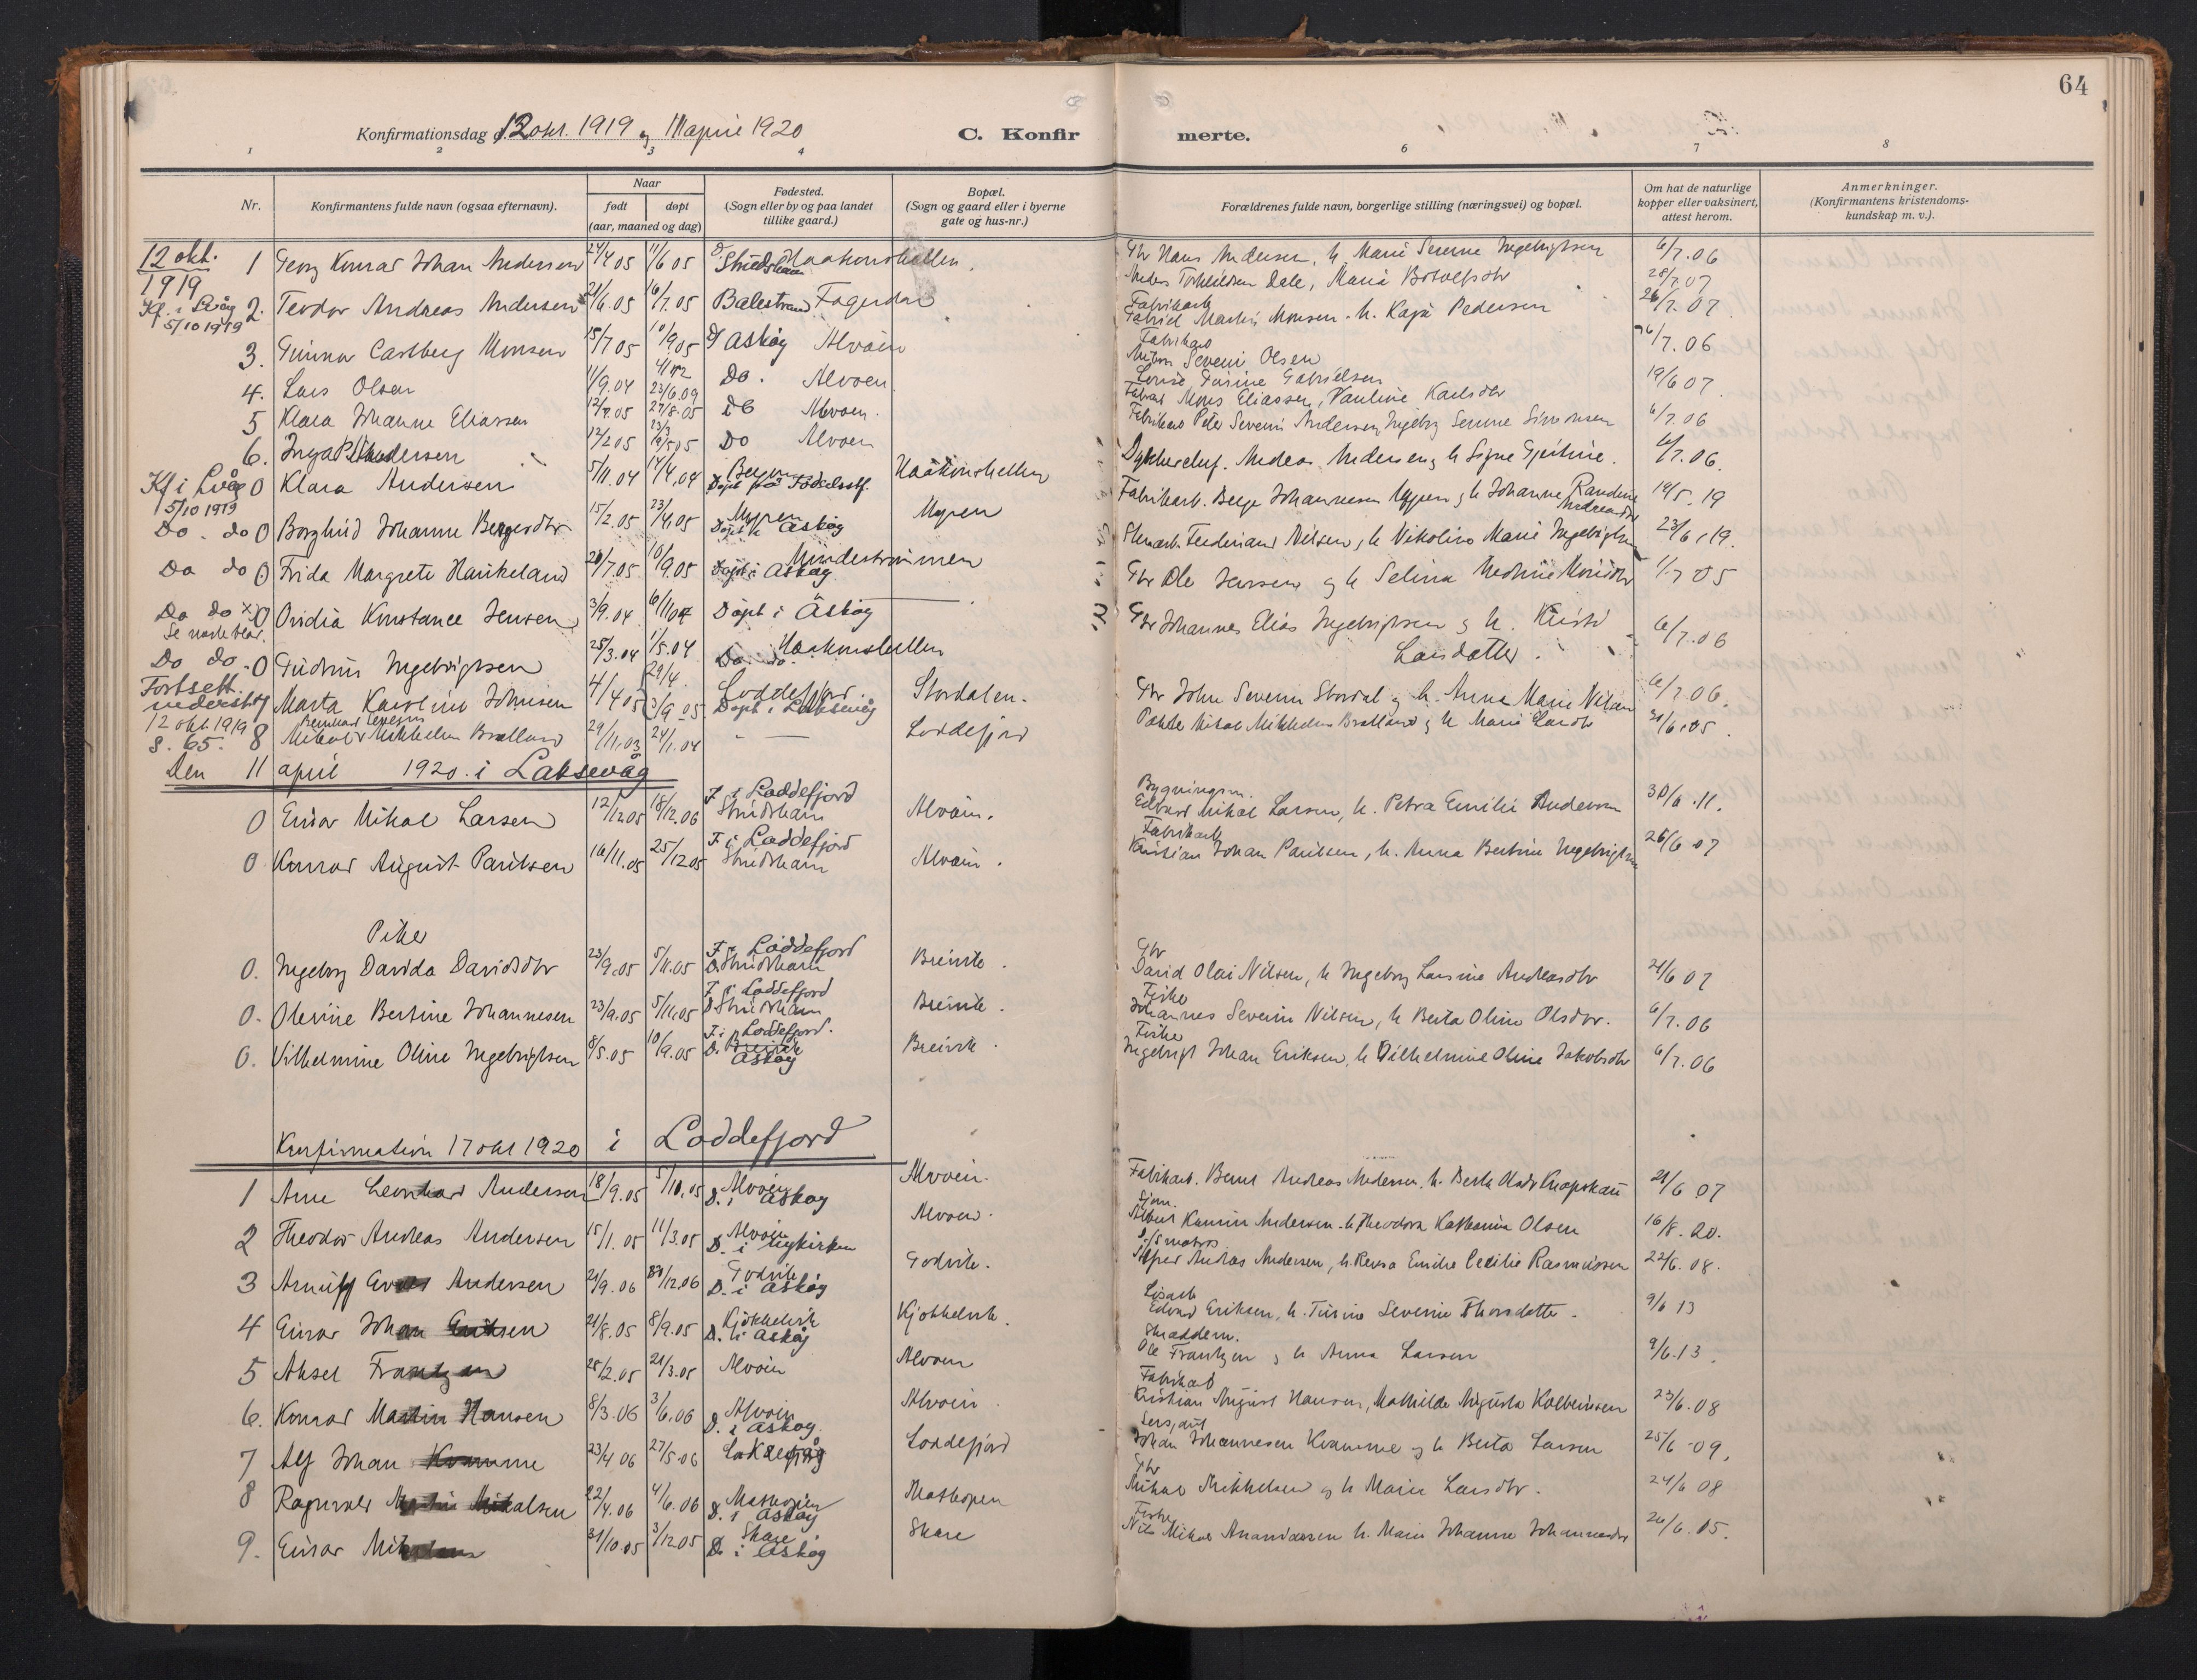 64
Konfirmationsdag d. 12 okt. 1919 og 11 april 1920
C. Konfir merte.
1 2 3 4 6 7 8
Nr.
Konfirmantens fulde navn (ogsaa efternavn).
Naar
født døpt
(aar, maaned og dag)
Fødested.
(Sogn eller by og paa landet
tillike gaard.)
Bopæl.
(Sogn og gaard eller i byerne
gate og hus-nr.)
Forældrenes fulde navn, borgerlige stilling (næringsvei) og bopæl.
Om hat de naturlige
kopper eller vaksinert,
attest herom.
Anmerkninger.
(Konfirmantens kristendoms-
kundskap m. v.).
12 okt. 1919
1 Georg Konrad Johan Andersen 24/4 05 11/6 05 Strudshavn Haakonshellen Gbr Hans Andersen, h. Marie Serine Ingebrigtsen 6/7.06
Kf. i Lvåg 5/10 1919
2. Teodor Andreas Andersen 21/6.05 16/7.05 Balestrand Fagerdal Anders Torkildsen Dale, Maria Botolfsdtr 28/7.07
3. Gunnar Carlberg Monsen 15/7 05 10/9.05 D Askøy Alvøen Fabrikarb Gabriel Martin Monsen. h. Kaja Pedersen 26/7.07
4. Lars Olsen 11/9.04 Do. Alvøen Fabrikarb Severin Olsen 6/7.06
5 Klara Johanne Eliassen 23/6.09 do Alvøen. Louise Gurine Gabrielsen 19/6 07
6. Inga P. Andersen 12/2 05 Do Alvøen Mons Eliassen, Pauline Karlsdtr
Fabrikarb Peter Severin Andersen, Ingeborg Serine Simonsen 6/7.06
Kf i Lvåg 5/10 1919
0 Klara Andersen 5/11.04 Bergen Døpt på Fødselsstf. Haakonshellen Andreas Andersen og h Signe Gjertine. 6/7.06.
Do. do 0 Borghild Johanne Bergesdtr 15/2.05 23/4.05 Myren Døpt i Askøy Myren Fabrikarb. Berge Johannesen Myren og h Johanne Randine Andreasdtr 19/5.19
Do do 0 Frida Margrete Haukeland 20/7.05 10/9.05 Døpt i Askøy Mindestrømmen Stenarb. Ferdinand Nilsen, h Nikoline Marie Ingebrigtsen 23/6.19.
Do do x) 0 Ovidia Konstance Jensen 3/9.04 6/11 04 Døpt i Askøy Gbr Ole Jensen og h Selina 1/7 05
Se neste blad.
Do do. 0 Gudrun Ingebrigtsen 25/3.04 1/5.04 Do. do. Haakonshellen Gbr Johannes Elias Ingebrigtsen og h. Kristi Larsdatter. 6/7.06
Fortsett. nederst
7 Marta Karoline Johnsen 4/4 05 Loddefjord. Døpt i Laksevåg Stordalen. Gbr John Severin Stordal og h. Anna Marie Nilsen 6/7 06.
12 okt. 1919 s. 65.
8 Mikal Mikkelsen Brælland 29/11.03 24/1.04 Loddefjord Mikal Mikkelsen Brælland og h Marie Larsdtr 21/6.05.
Den 11 april 1920. i Laksevåg
0 Einar Mikal Larsen 12/12 05 18/12.06 F. i Loddefjord Strudshavn Alvøen. Bygningsm. Edvard Mikal Larsen, h. Petra Emilie Andersen 30/6.11.
0 Konrad August Paulsen 16/11.05 25/12 05 F. i Loddefjord Strudshavn Alvøen. Fabrikarb Kristian Johan Paulsen, h. Anna Bertine Ingebrigtsen 26/6 07
Piker
0. Ingeborg Davida Davidsdtr 23/9.05 5/11.05 F. i Loddefjord D. Strudshavn Breivik. Gbr David Olai Nilsen, h Ingeborg Larsine Andreasdtr 21/6 07
0. Olevine Bertine Johannesen 23/9.05 5/11.05 F. i Loddefjord D. Strudshavn Breivik. Fisker Johannes Severin Nilsen, h Berta Oline Olsdtr. 6/7.06
0. Vilhelmine Oline Ingebrigtsen 8/5.05 10/9.05 F. i Loddefjord. D. Breivik Askøy Breivik. Fisker Ingebrigt Johan Eriksen, h Vilhelmine Oline Jakobsdtr 6/7.06
Konfirmation 17 okt 1920 i Loddefjord
1 Arne Leonhard Andersen 18/9.05 5/10.05 Alvøen D. i Askøy Alvøen. Fabrikarb. Bernt Andreas Andersen, h. Berte 21/6 07
2 Theodor Andreas Andersen 15/1.05 11/3.05 Alvøen D. i Nykirken Alvøen. Sjøm. Albert Andersen. h. Theodora Katharina Olsen 16/8.20.
3 Arnulf Andersen 21/9.06 12.06 Godvik D. i Askøy Godvik. Andreas Andersen, h. Emilie Cecilie Rasmussen 22/6.08.
4 Einar Johan Eriksen 21/8.05 8/9.05 Kjøkkelvik D. i Askøy Kjøkkelvik. Løsarb Edvard Eriksen, h. Severine Thorsdatter. 9/6 13
5 Aksel Frantzen 25/2.05 21/3.05 Alvøen Alvøen Skrædderm. Ole Frantzen og h Anna Larsen 9/6.13.
6. Konrad Martin Hansen 8/3.06 3/6.06 Alvøen D. i Askøy. Alvøen Fabrikarb Kristian August Hansen, Mathilde Augusta Kolbeinsen 23/6.08
7 Alf Johan Kvamme 23/4 06 27/5.06 Laksevåg Loddefjord Johan Johannesen Kvamme og h Berta Larsen 25/6.09.
8 Ragnvald Martin Mikalsen 22/4.06 4/6.06 Mathopen D. i Askøy Mathopen Gbr Mikal Mikkelsen og h Marie Larsdtr. 24/6 08
9. Einar 31/10.05 3/12 05 Skare D. i Askøy Skare Fisker Nils Mikal h. Marie Johanne Johannesdtr 26/6.05.